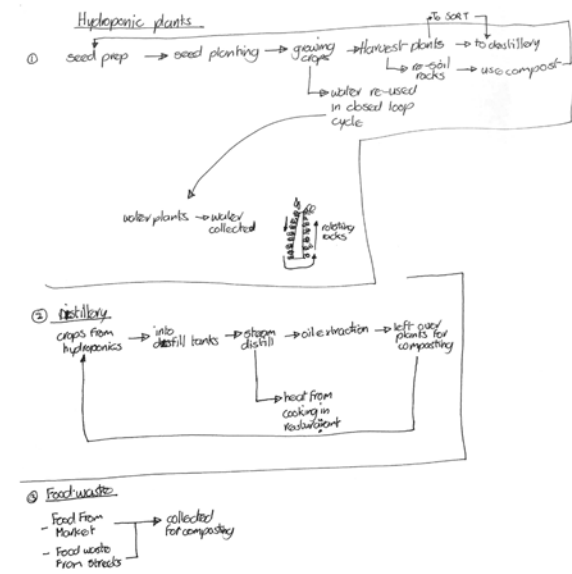 Hydroponic plants
TO SORT
① seed prep → seed planting → growing crops → Harvest plants → to destillery
re-soil racks → use compost
water re-used
in closed loop
cycle
water plants → water
collected
rotating
racks
② Distillery
crops from
hydroponics → into
distill tanks → steam
distill → oil extraction → left over
plants for
composting
heat from
cooking in
restaurant
③ Food waste
- Food From
Market
→ collected
for composting
- Food waste
From streets